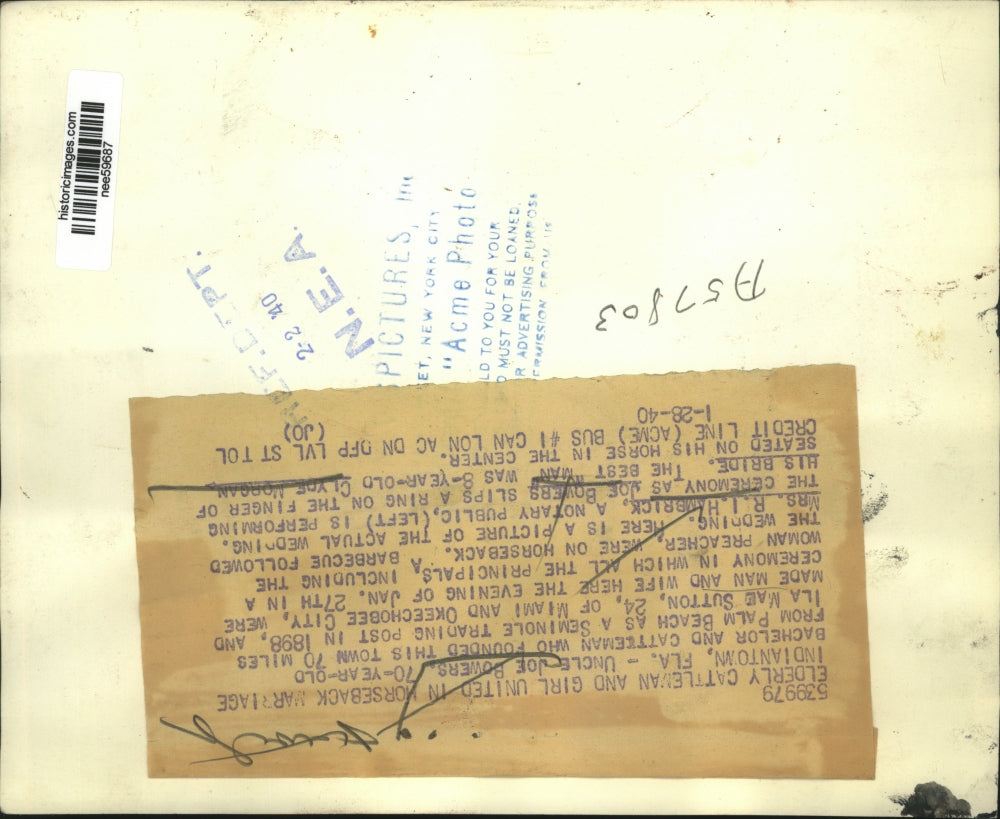 539979
ELDERLY CATTLEMAN AND GIRL UNITED IN HORSEBACK MARRIAGE
INDIANTOWN, FLA. - UNCLE JOE BOWERS, 70-YEAR-OLD
BACHELOR AND CATTEMAN WHO FOUNDED THIS TOWN 70 MILES
FROM PALM BEACH AS A SEMINOLE TRADING POST IN 1898, AND
ILA MAE SUTTON, 24, OF MIAMI AND OKEECHOBEE CITY, WERE
MADE MAN AND WIFE HERE THE EVENING OF JAN. 27TH IN A
CEREMONY IN WHICH ALL THE PRINCIPALS, INCLUDING THE
WOMAN PREACHER, WERE ON HORSEBACK. A BARBECUE FOLLOWED
THE WEDDING. HERE IS A PICTURE OF THE ACTUAL WEDDING.
MRS. R.L. HAMBRICK, A NOTARY PUBLIC, (LEFT) IS PERFORMING
THE CEREMONY AS JOE BOWERS SLIPS A RING ON THE FINGER OF
HIS BRIDE. THE BEST MAN WAS 8-YEAR-OLD CLYDE MORGAN
SEATED ON HIS HORSE IN THE CENTER.
CREDIT LINE (ACME) BUS #1 CAN LON AC DN DFP LVL ST TOL
1-28-40 (JO)
A57803
PICTURES, Inc
ET, NEW YORK CITY
"Acme Photo
LD TO YOU FOR YOUR
D MUST NOT BE LOANED,
R ADVERTISING PURPOSE
ERMISSION FROM US
REF. DEPT.
2-2 40
N.E.A.
historicimages.com
nee59687